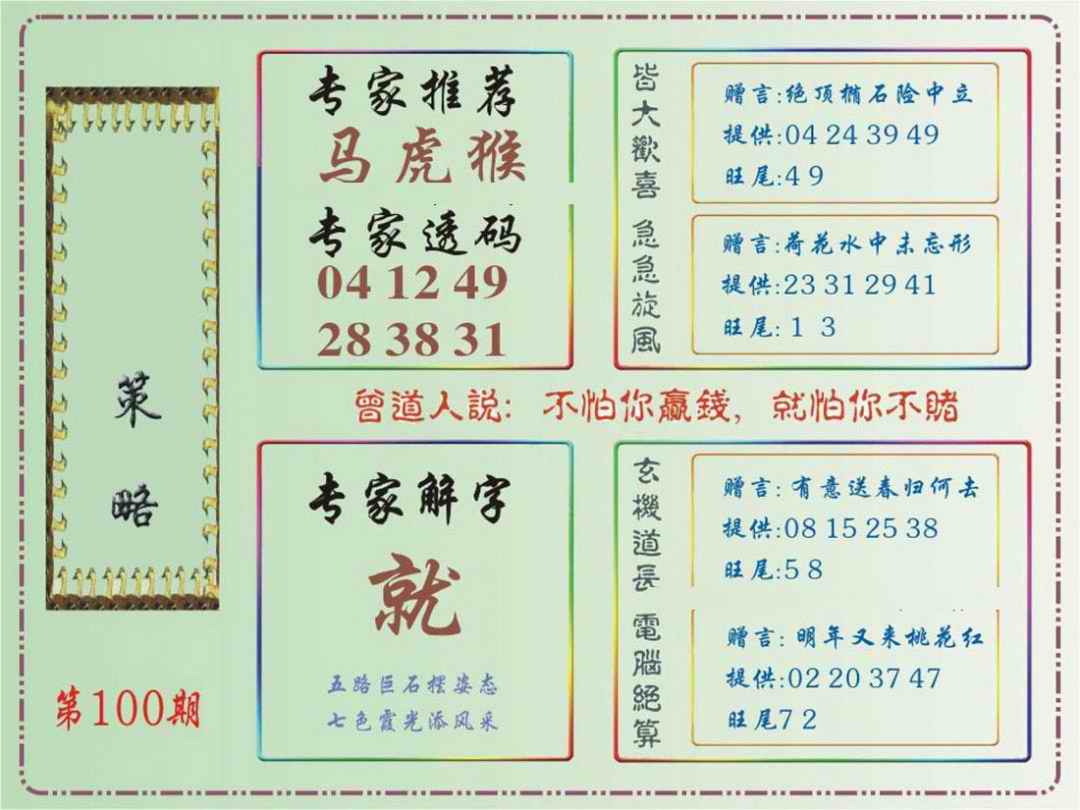 策略
第100期
专家推荐
马虎猴
专家透码
04 12 49
28 38 31
皆大歡喜
赠言:绝顶梢石险中立
提供:04 24 39 49
旺尾:4 9
急急旋風
赠言:荷花水中未忘形
提供:23 31 29 41
旺尾:1 3
曾道人説: 不怕你贏錢, 就怕你不賭
专家解字
就
五路巨石摆姿态
七色霞光添风采
玄機道長
赠言: 有意送春归何去
提供:08 15 25 38
旺尾:5 8
電腦絕算
赠言: 明年又来桃花红
提供:02 20 37 47
旺尾7 2